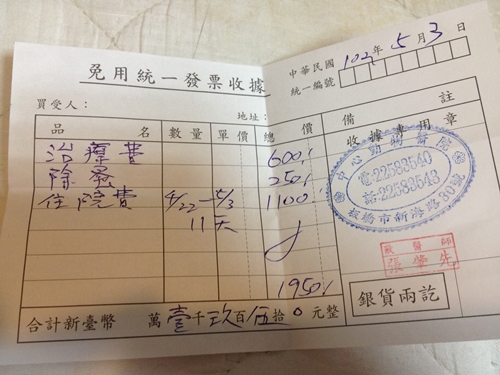 免用統一發票收據
中華民國102年5月3日
統一編號
買受人：
地址：
品名 數量 單價 總價 備註
治療費 600.-
除蚤 250.-
住院費 4/22-5/3 1100.-
11天
1950.-
合計新臺幣 萬壹千玖百伍拾0元整
收據專用章
中心動物醫院
電:22583540
話:22583543
板橋市新海路80號
獸醫師
銀貨兩訖